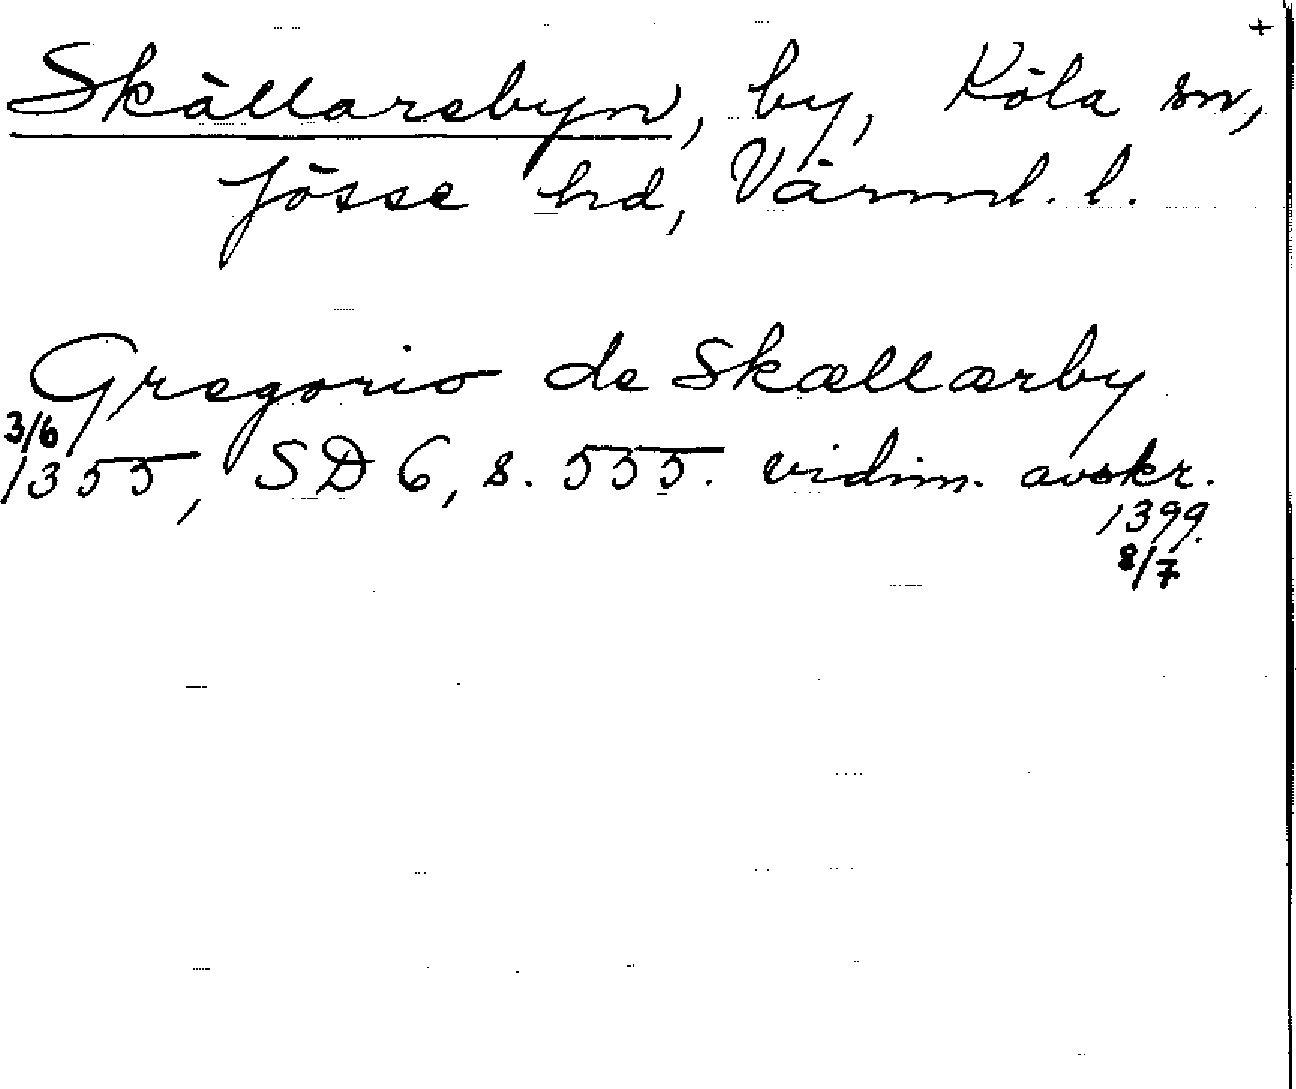 +
Skällarebyn, by, Köla sn,
Jösse hd, Värml. l.
Gregorio de Skællærby
3/6
1355, SD 6, s. 555. vidim. avskr.
1399.
8/7